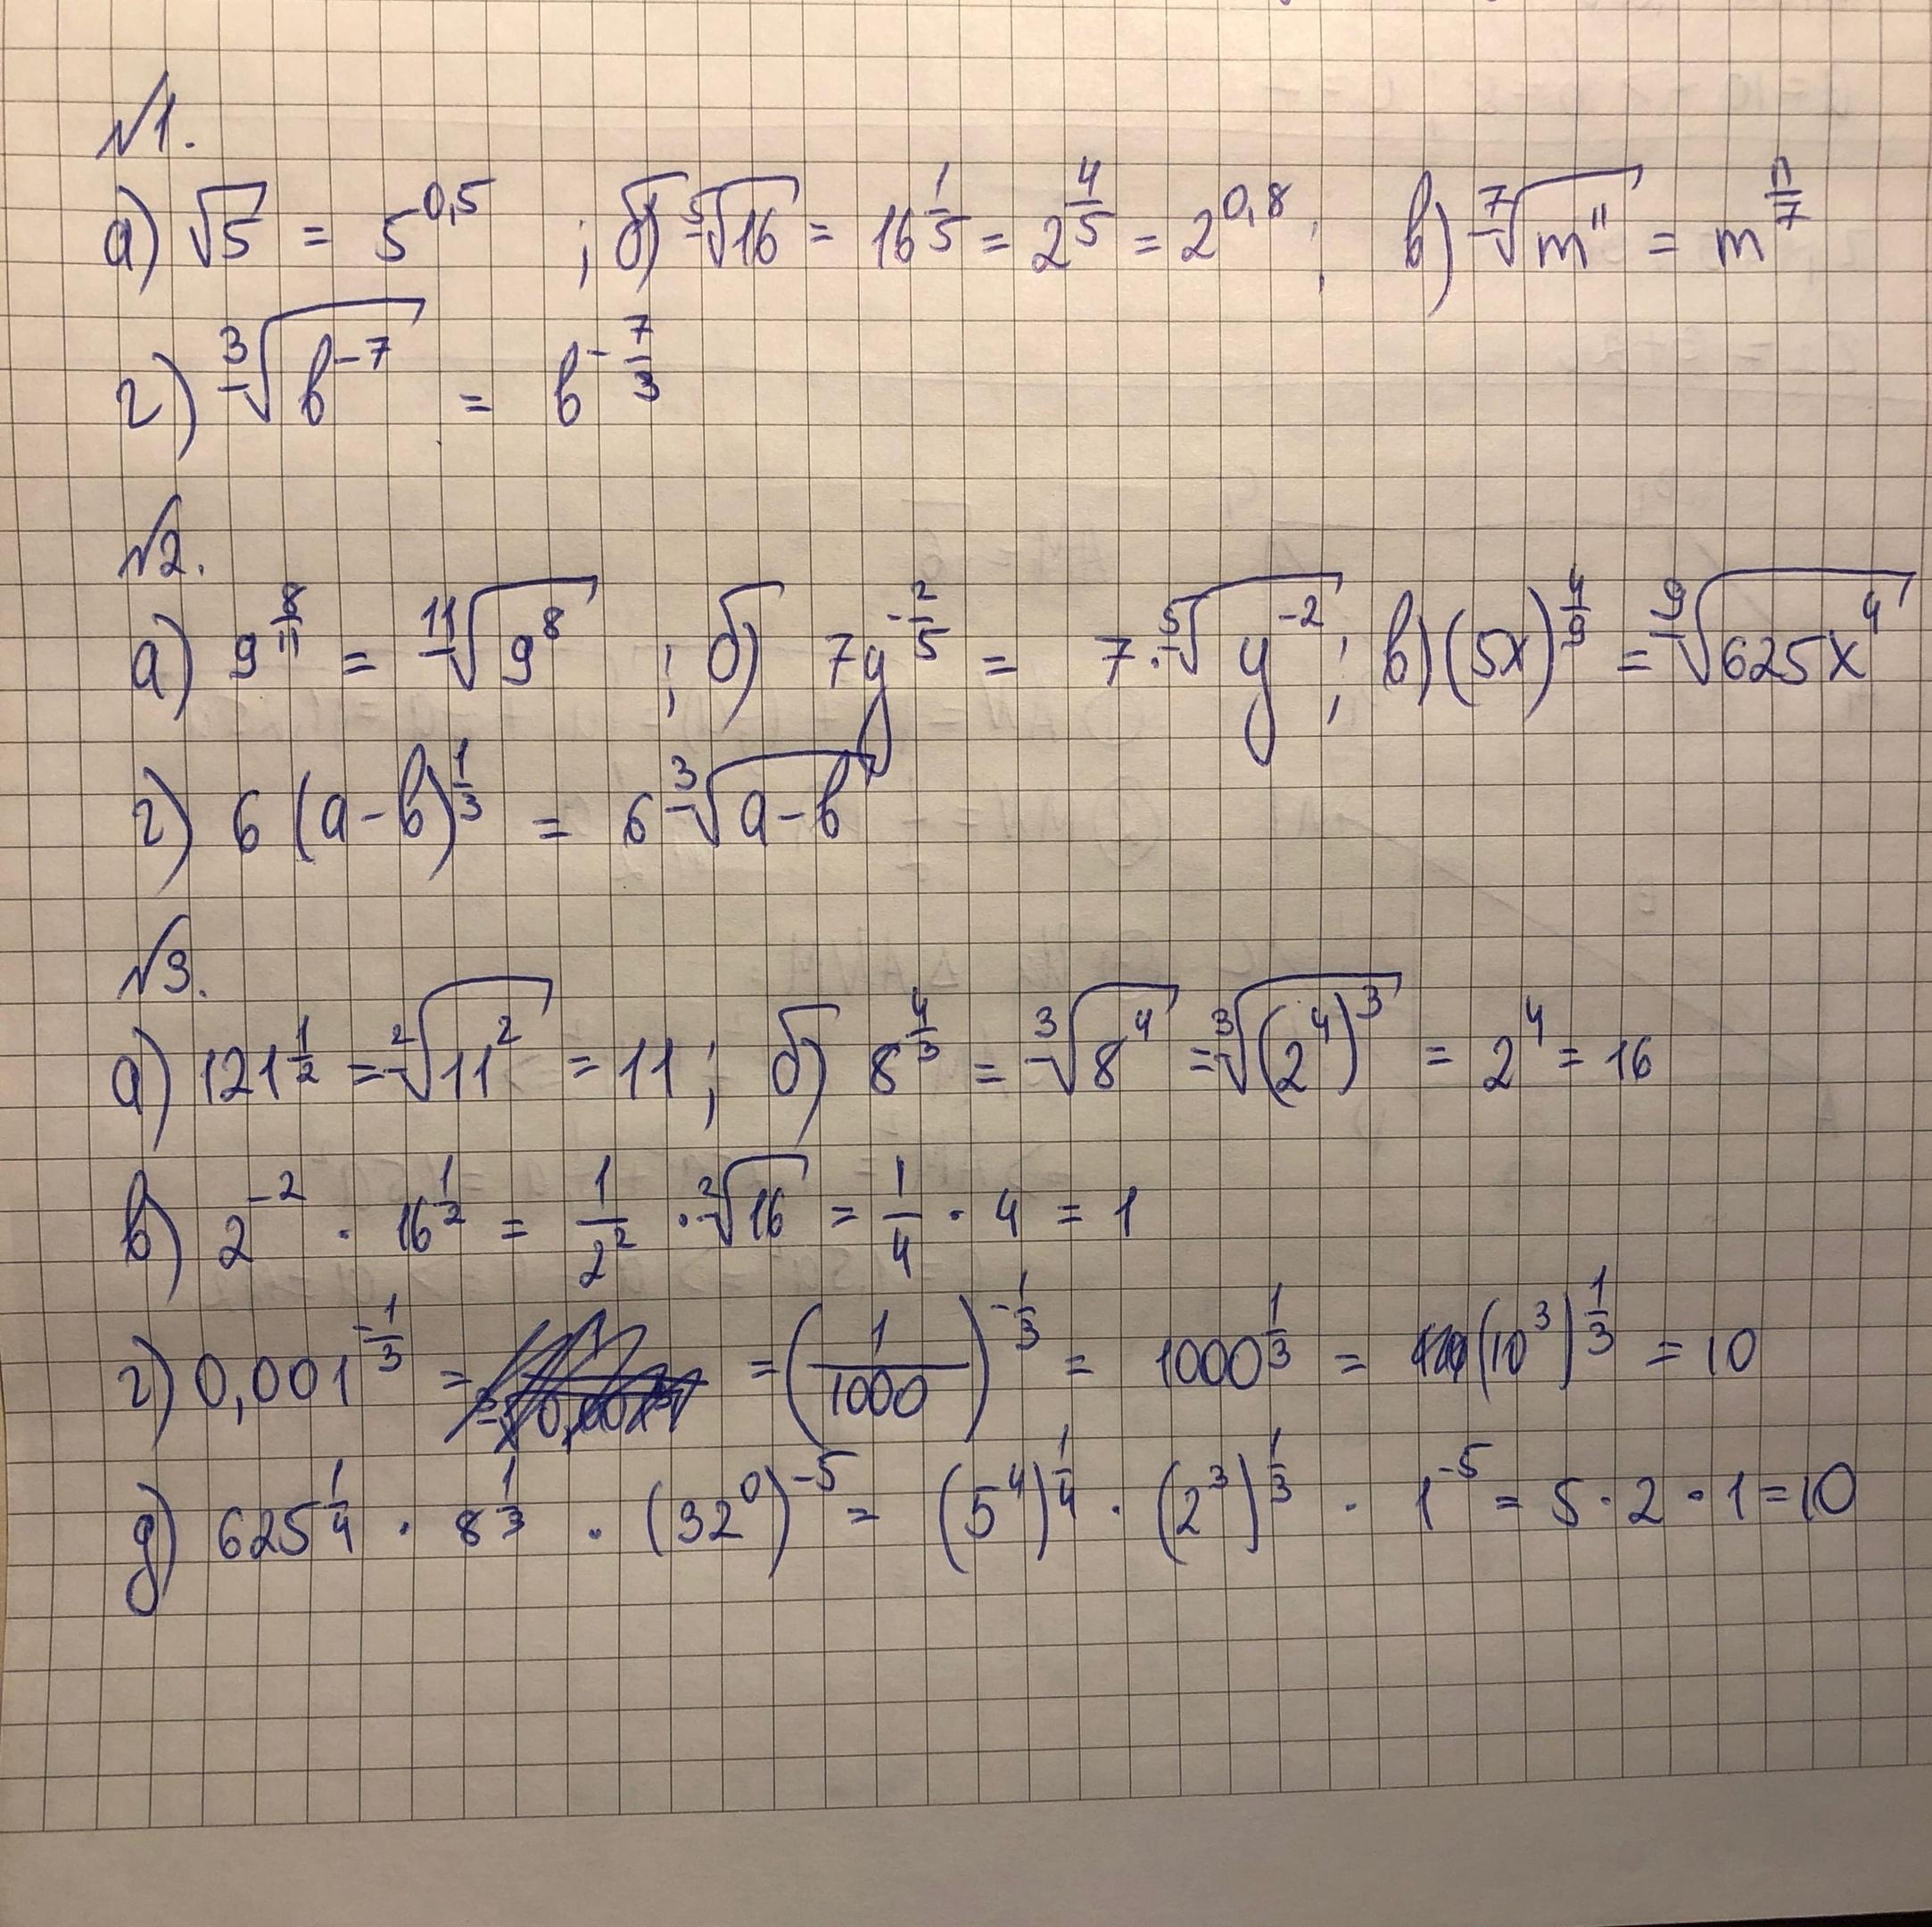 №1.
а) √5 = 5^0,5 ; б) ⁵√16 = 16^(1/5) = 2^(4/5) = 2^0,8 ; в) ⁷√m¹¹ = m^(11/7)
г) ³√b⁻⁷ = b^(-7/3)
№2.
а) 9^(8/11) = ¹¹√9⁸ ; б) 7y^(-2/5) = 7·⁵√y⁻² ; в) (5x)^(4/9) = ⁹√625x⁴
г) 6(a-b)^(1/3) = 6 ³√a-b
№3.
а) 121^(1/2) = ²√11² = 11 ; б) 8^(4/3) = ³√8⁴ = ³√(2⁴)³ = 2⁴ = 16
в) 2⁻² · 16^(1/2) = 1/2² · ²√16 = 1/4 · 4 = 1
г) 0,001^(-1/3) = = (1/1000)^(-1/3) = 1000^(1/3) = (10³)^(1/3) = 10
д) 625^(1/4) · 8^(1/3) · (32⁰)⁻⁵ = (5⁴)^(1/4) · (2³)^(1/3) · 1⁻⁵ = 5·2·1=10